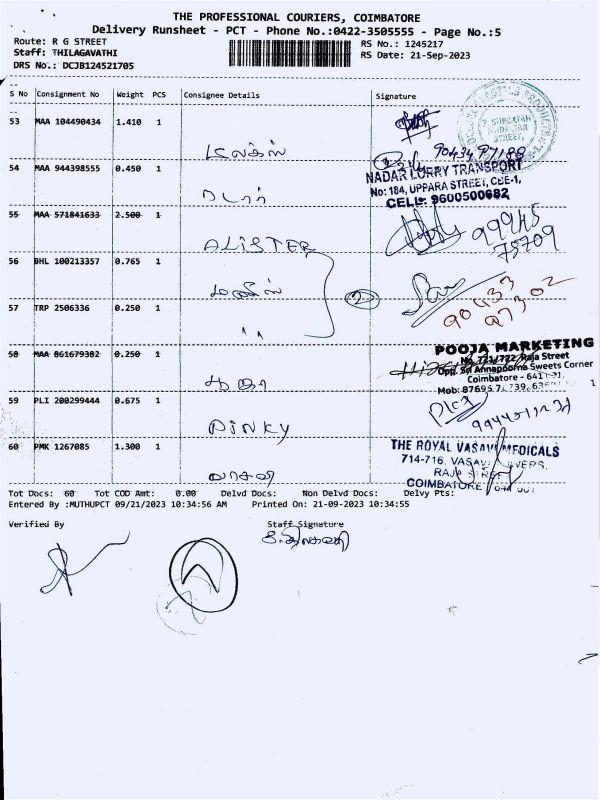 THE PROFESSIONAL COURIERS, COIMBATORE
Delivery Runsheet - PCT - Phone No.:0422-3505555 - Page No.:5
Route: R G STREET RS No.: 1245217
Staff: THILAGAVATHI RS Date: 21-Sep-2023
DRS No.: DCJB124521705
S No Consignment No Weight PCS Consignee Details Signature
53 MAA 104490434 1.410 1
54 MAA 944398555 0.450 1
NADAR LORRY TRANSPORT
No: 184, UPPARA STREET, CBE-1,
CELL: 9600500682
55 MAA 571841633 2.500 1
ALISTER
99945
75709
56 BHL 100213357 0.765 1
2
90433
97302
57 TRP 2506336 0.250 1
''
58 MAA 861679382 0.250 1
POOJA MARKETING
No. 721/722, Raja Street
Opp. Sri Annapoorna Sweets Corner
Coimbatore - 641
59 PLI 200299444 0.675 1
PINKY
60 PMK 1267085 1.300 1
வாசவி
THE ROYAL VASAVI MEDICALS
714-716, VASAVI TOWERS,
RAJA STREET
COIMBATORE
Tot Docs: 60 Tot COD Amt: 0.00 Delvd Docs: Non Delvd Docs: Delvy Pts:
Entered By :MUTHUPCT 09/21/2023 10:34:56 AM Printed On: 21-09-2023 10:34:55
Verified By Staff Signature